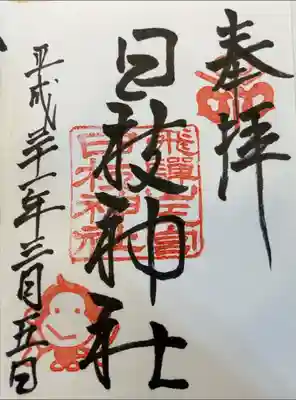 奉拝
日枝神社
平成三十一年三月五日
飛驒
日枝神社